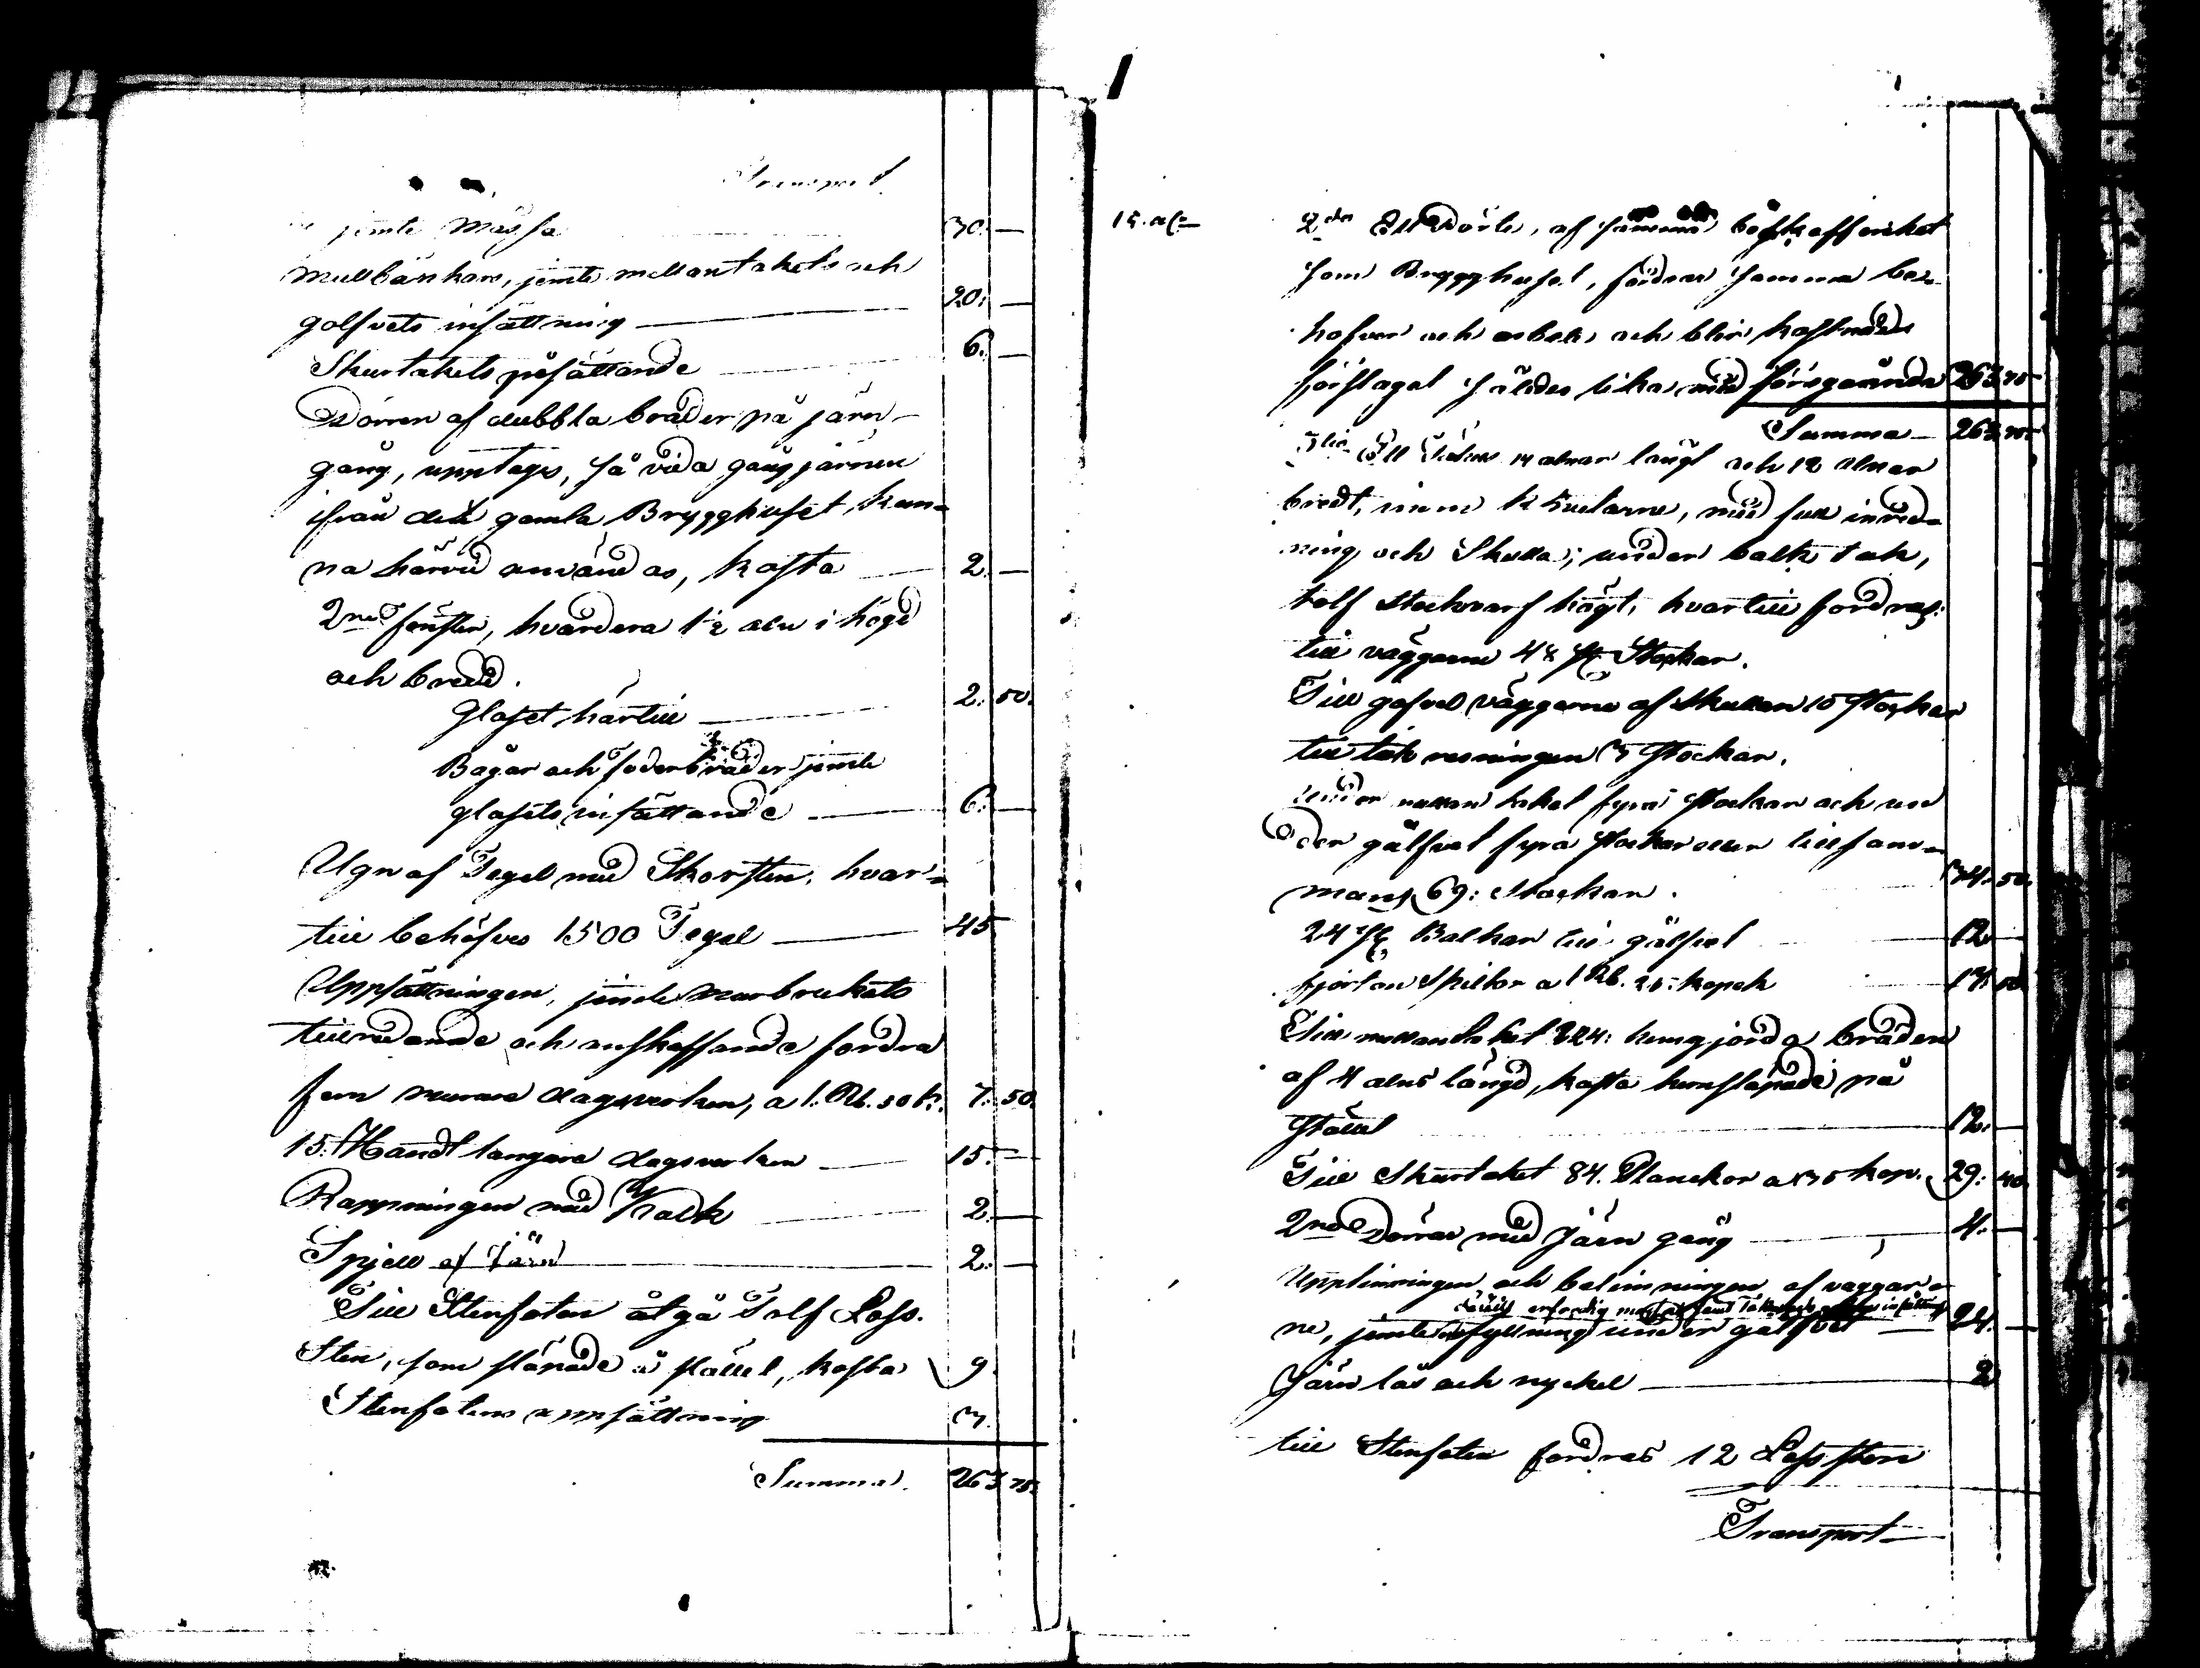 Transport
jemte Mossa 30. —
Mullbänkars, jemte mellantakets och
golfvets insättning — 20. —
Skurtakets påsättande — 6. —
Dörren af dubbla bräder på järn-
gång, upptages, så vida gångjärnen
ifrån det gamla Brygghuset, kun-
na härvid användas, kosta — 2. —
2ne fönster, hvardera 1½ aln i högd
och bredd.
Glaset härtill — 2. 50.
Bågar och foderbräder jemte
glasets insättande — 6. —
Ugn af Tegel med Skorsten, hvar-
till behöfves 1500 Tegel — 45
Uppsättningen, jemte murbrukets
tillredande och anskaffande fordra
fem murare dagsverken, a 1. Rb. 50 k. 7. 50.
15. Handtlangare dagsverken — 15. —
Rappningen med Kalk — 2. —
Spjell af Järn — 2. —
Till Stenfoten åtgå Tolf Lass.
Sten, som släpade å stället, kosta 9.
Stenfotens uppsättning 3.
Summa. 263 75.
2do Ett, af samma beskaffenhet
som Brygghuset, fordrar samma be-
hofver och arbete och blir kostnads
förslaget således lika med föregående 263 75
Summa — 263 75
3tio Ett 14 alnar långt och 12 alnar
bredt, inom knutarne, med full inred-
ning och Skulla; under balk tak,
tolf Stockvarf högt, hvartill fordras:
till väggarne 48 st Stockar.
Till gafvel väggarne af Skullan 10 Stockar
till tak resningen 3 Stockar.
under mellan taket fyra Stockar och un
der gålfvet fyra Stockar eller tillsam-
mans 69: Stockar. 34. 50.
24 st Balkar till gålfvet — 12 —
fjorton Spiltor a 1 Rb. 25. kopek 17. 50
Till mellantaket 224: hemgjorda bräden
af 4 alns längd, kosta hemsläpade på
Stället — 12. —
Till Skurtaket 84. Planckor a 35 kop. 29. 40.
2ne Dörrar med Järn gång — 4. —
Upptimringen och betimningen af väggar-
ne, jemte uppfyllning under gålfvet — 24. —
Järn lås och nyckel — 2
till Stenfoten fordras 12 Lass sten
Transport —